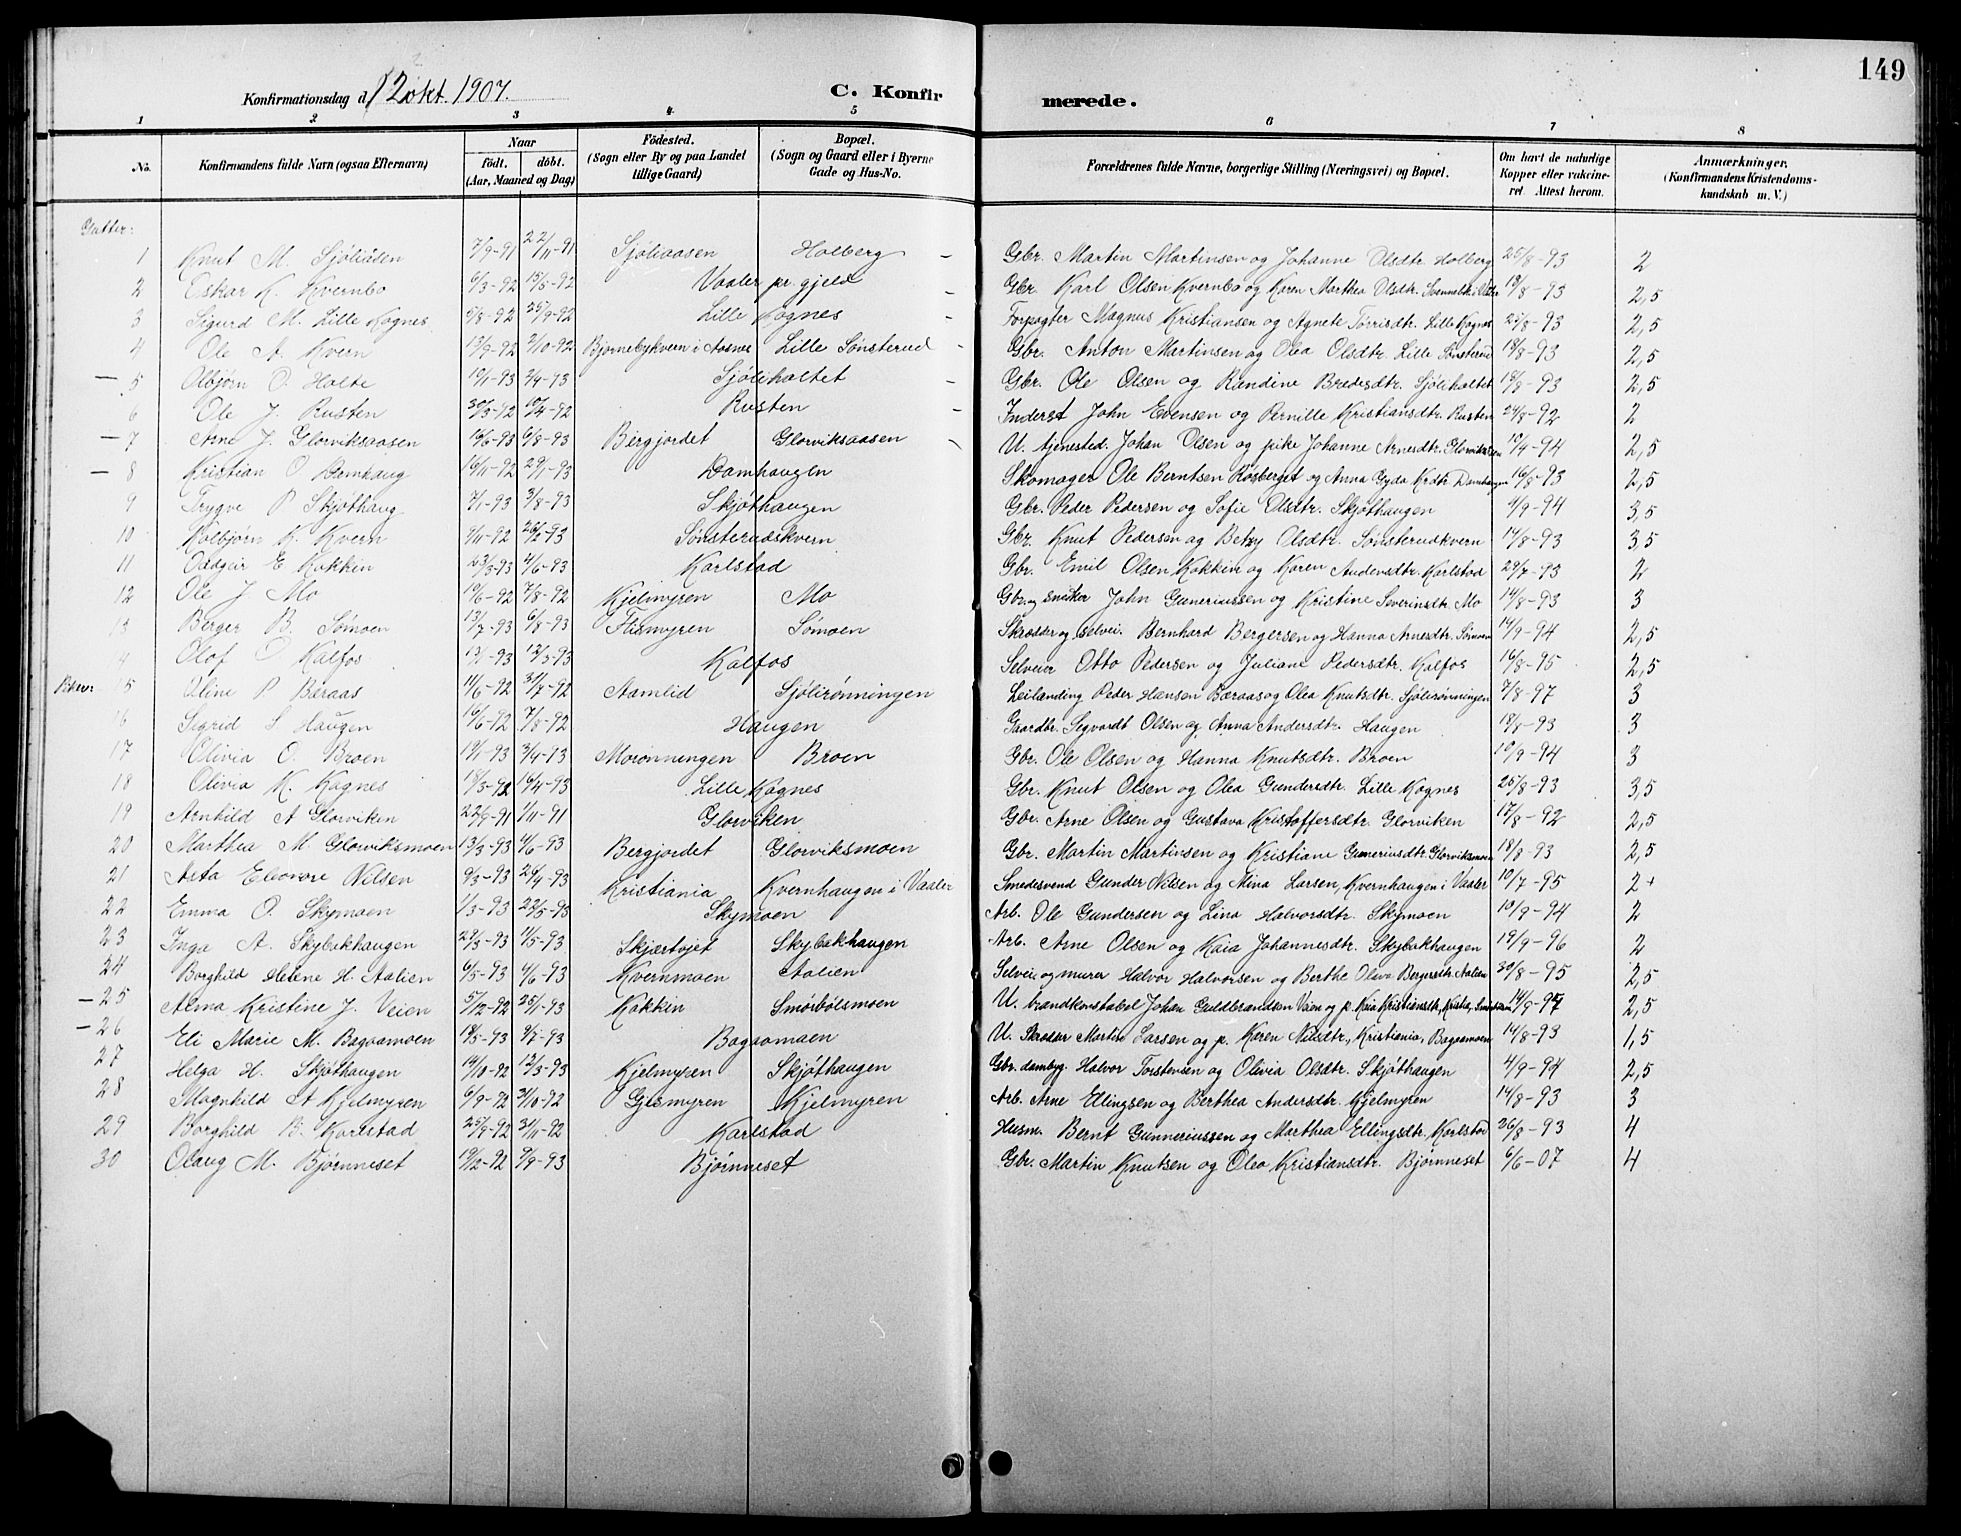 149
Konfirmationsdag d. 12 okt. 1907.
C. Konfirmerede.
1 2 3 4 5 6 7 8
No. Konfirmandens fulde Navn (ogsaa Efternavn) Naar födt. döbt. (Aar, Maaned og Dag) Födested. (Sogn eller By og paa Landet tillige Gaard) Bopæl. (Sogn og Gaard eller i Byerne Gade og Hus-No. Forældrenes fulde Navne, borgerlige Stilling (Næringsvei) og Bopæl. Om havt de naturlige Kopper eller vakcineret. Attest herom. Anmærkninger. (Konfirmandens Kristendomskundskab m. V.)
Gutter:
1 Knut M. Sjöliåsen 7/9-91 22/11-91 Sjöliaasen Holberg Gbr. Martin Martinsen og Johanne Olsdtr. Holberg 25/8-93 2
2 Eskar K. Kvernbo 6/3-92 15/5-92 Vaaler pr.gjeld Gbr. Karl Olsen Kvernbo og Karen Marthea Olsdtr. 19/8-93 2,5
3 Sigurd M. Lille Kognes 9/8-92 25/9-92 Lille Kognes Forpagter Magnus Kristiansen og Agnete Torrisdtr. Lille Kognes 25/8-93 2,5
4 Ole A. Kvern 13/9-92 2/10-92 Bjørnebykvern i Aasnes Lille Sønsterud Gbr. Anton Martinsen og Olea Olsdtr. Lille Sønsterud 18/8-93 2,5
5 Olbjørn O. Holte 19/1-93 3/4-93 Sjöliholtet Gbr. Ole Olsen og Randine Bredesdtr. Sjöliholtet 18/8-93 2,5
6 Ole J. Rusten 30/3-92 10/4-92 Rusten Inderst John Evensen og Pernille Kristiansdtr. Rusten 24/8-92 2
7 Arne J. Glorviksaasen 16/6-93 6/8-93 Bergjordet Glorviksaasen U. tjenested. Johan Olsen og pike Johanne Arnesdtr. Glorviksaasen 10/4-94 2,5
8 Kristian O. Damhaug 16/11-92 29/1-93 Damhaugen Skomager Ole Berntsen Røsberget og Anna Gyda Krdtr. Damhaugen 16/8-93 2,5
9 Trygve P. Skjøthaug 7/1-93 3/8-93 Skjøthaugen Gbr. Peder Pedersen og Sofie Olsdtr. Skjøthaugen 4/9-94 3,5
10 Kolbjørn K. Kvern 9/11-92 26/2-93 Sønsterudskvern Gbr. Knut Pedersen og Betzy Olsdtr. Sønsterudkvern 14/8-93 3,5
11 Oddgeir E Kokkin 23/3-93 4/6-93 Karlstad Gbr. Emil Olsen Kokkin og Karen Andersdtr. Karlstad 29/7-93 2
12 Ole J. Mo 19/6-92 7/8-92 Kjelmyren Mo Gbr. og snekker John Gunerius­sen og Kristine Severinsdtr. Mo 14/8-93 3
13 Berger B. Sømoen 13/7-93 6/8-93 Flismyren Sømoen Skrædder og selvei. Bernhard Bergersen og Hanna Arnesdtr. Sømoen 19/9-94 2,5
4 Olof O. Kalfos 13/1-93 12/3-93 Kalfos Selveier Otto Pedersen og Juliane Pedersdtr. Kalfos 16/8-95 2,5
Piker: 15 Oline P. Beraas 11/6-92 31/7-92 Aamlid Sjölirønningen Leilænding Peder Hansen Bæraas og Olea Knutsdtr. Sjölirønningen 7/8-97 3
16 Sigrid S. Haugen 16/6-92 7/8-92 Haugen Gaardbr. Segvardt Olsen og Anna Andersdtr. Haugen 18/8-93 3
17 Olivia O. Broen 19/1-93 3/4-13 Morønningen Broen Gbr. Ole Olsen og Hanna Knutsdtr. Broen 10/9-94 3
18 Olivia K. Kognes 18/3-92 16/4-93 Lille Kognes Gbr. Knut Olsen og Olea Gundersdtr. Lille Kognes 25/8-93 3,5
19 Arnhild A Glorviken 22/9-91 1/11-91 Glorviken Gbr. Arne Olsen og Gustava Kristoffersdtr. Glorviken 17/8-92 2,5
20 Marthea M. Glorviksmoen 13/3-93 4/6-93 Bergjordet Glorviksmoen Gbr. Martin Martinsen og Kristiane Guneriusdtr. Glorviksmoen 18/8-93 2,5
21 Asta Eleonore Nilsen 9/3-93 24/4-93 Kristiania Kvernhaugen i Vaaler Smedesvend Gunder Nilsen og Mina Larsen, Kvernhaugen i Vaaler 10/7-95 2+
22 Emma O. Skymoen 1/3-93 22/5-93 Skymoen Arb. Ole Gundersen og Lina Halvorsdtr. Skymoen 10/9-94 2
23 Inga A. Skybakhaugen 29/3-93 11/5-93 Skjærtojet Skybakhaugen Arb. Arne Olsen og Kaia Johannesdtr. Skybakhaugen 19/9-96 2
24 Borghild Helene H. Aalien 6/5-93 4/6-93 Kvernmoen Aalien Selvei. og murer Halvor Halvorsen og Berthe Oliva Bergersdtr. Aalien 30/8-95 2,5
25 Alma Kristine J. Veien 5/12-92 25/1-93 Kokkin Smørbølsmoen U. brandkonstabel Johan Guldbrandsen Veien og p. Kaia Kristiansdtr, 14/9-97 2,5
26 Eli Marie M. Bagaamoen 18/5-93 9/7-93 Bagaamoen U. Skrædder Martin Larsen og p. Karen Nilsdtr., Kristiania, Bagaamoen 14/8-93 1,5
27 Helga H. Skjøthaugen 14/10-92 12/3-93 Kjelmyren Skjøthaugen Gbr. dambyg. Halvor Torstensen og Olivia Olsdtr. Skjøthaugen 4/9-94 2,5
28 Magnhild A Kjelmyren 6/9-92 31/10-92 Gismyren Kjelmyren Arb. Arne Ellingsen og Berthea Andersdtr. Kjelmyren 14/8-93 3
29 Borghild B. Karlstad 25/9-92 31/10-92 Karlstad Husm. Bernt Gunneriussen og Marthea Ellingsdtr. Karlstad 26/8-93 4
30 Olaug M. Bjørnneset 19/12-92 9/9-93 Bjørnneset Gbr. Martin Knutsen og Olea Kristiansdtr. Bjørnneset 6/6-07 4